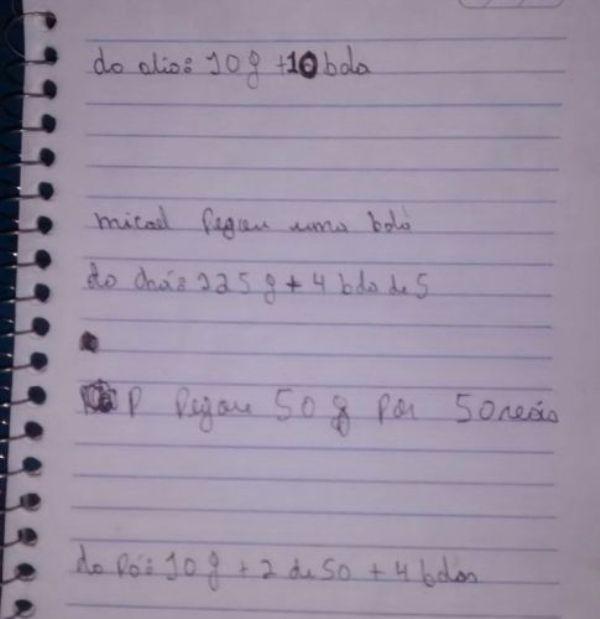 do olio: 10 g +10 bola
micael Pegou uma bola
do chá: 225 g + 4 bola de 5
P Pegou 50 g Por 50 reais
do Pó: 10 g + 2 de 50 + 4 bolas